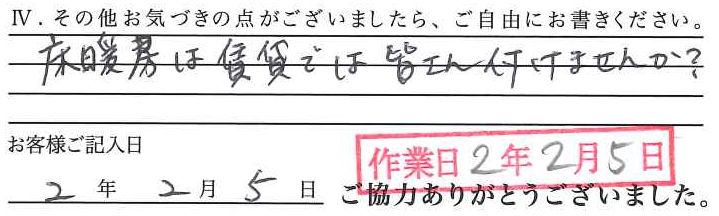 Ⅳ．その他お気づきの点がございましたら、ご自由にお書きください。
床暖房は賃貸では皆さん付けませんか？
お客様ご記入日
作業日2年2月5日
2年2月5日
ご協力ありがとうございました。